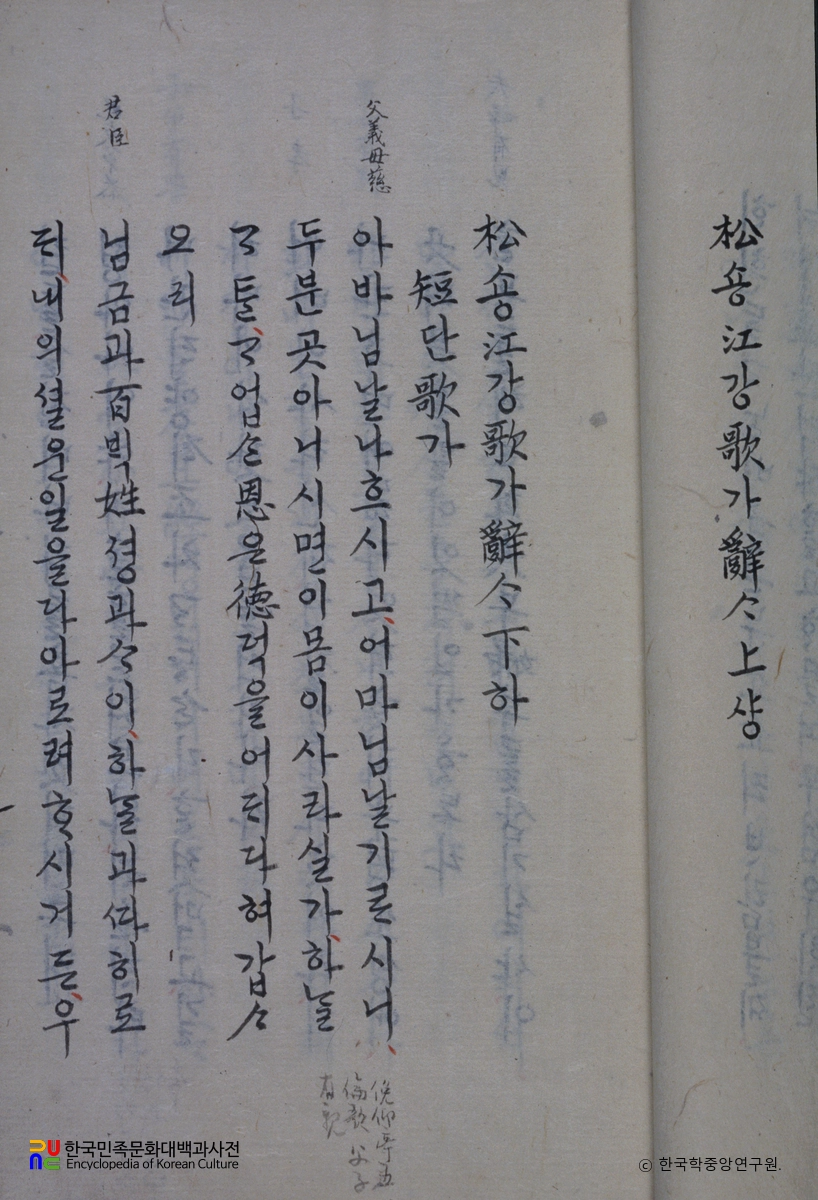 松숑江강歌가辭ᄉᆞ上샹
松숑江강歌가辭ᄉᆞ下하
短단歌가
父義母慈
아바님날나흐시고어마님날기르시니
俛仰亭五
倫歌 父子
有親
두분곳아니시면이몸이사라실가하ᄂᆞᆯ
ᄀᆞᄐᆞᆫᄀᆞ업ᄉᆞᆫ恩은德덕을어ᄃᆡ다혀갑ᄉᆞ
오리
君臣
님금과百ᄇᆡᆨ姓셩과ᄉᆞ이하ᄂᆞᆯ과ᄯᅡ히로
ᄃᆡ내의셜운일을다아로려ᄒᆞ시거든우
한국민족문화대백과사전
Encyclopedia of Korean Culture
ⓒ 한국학중앙연구원.